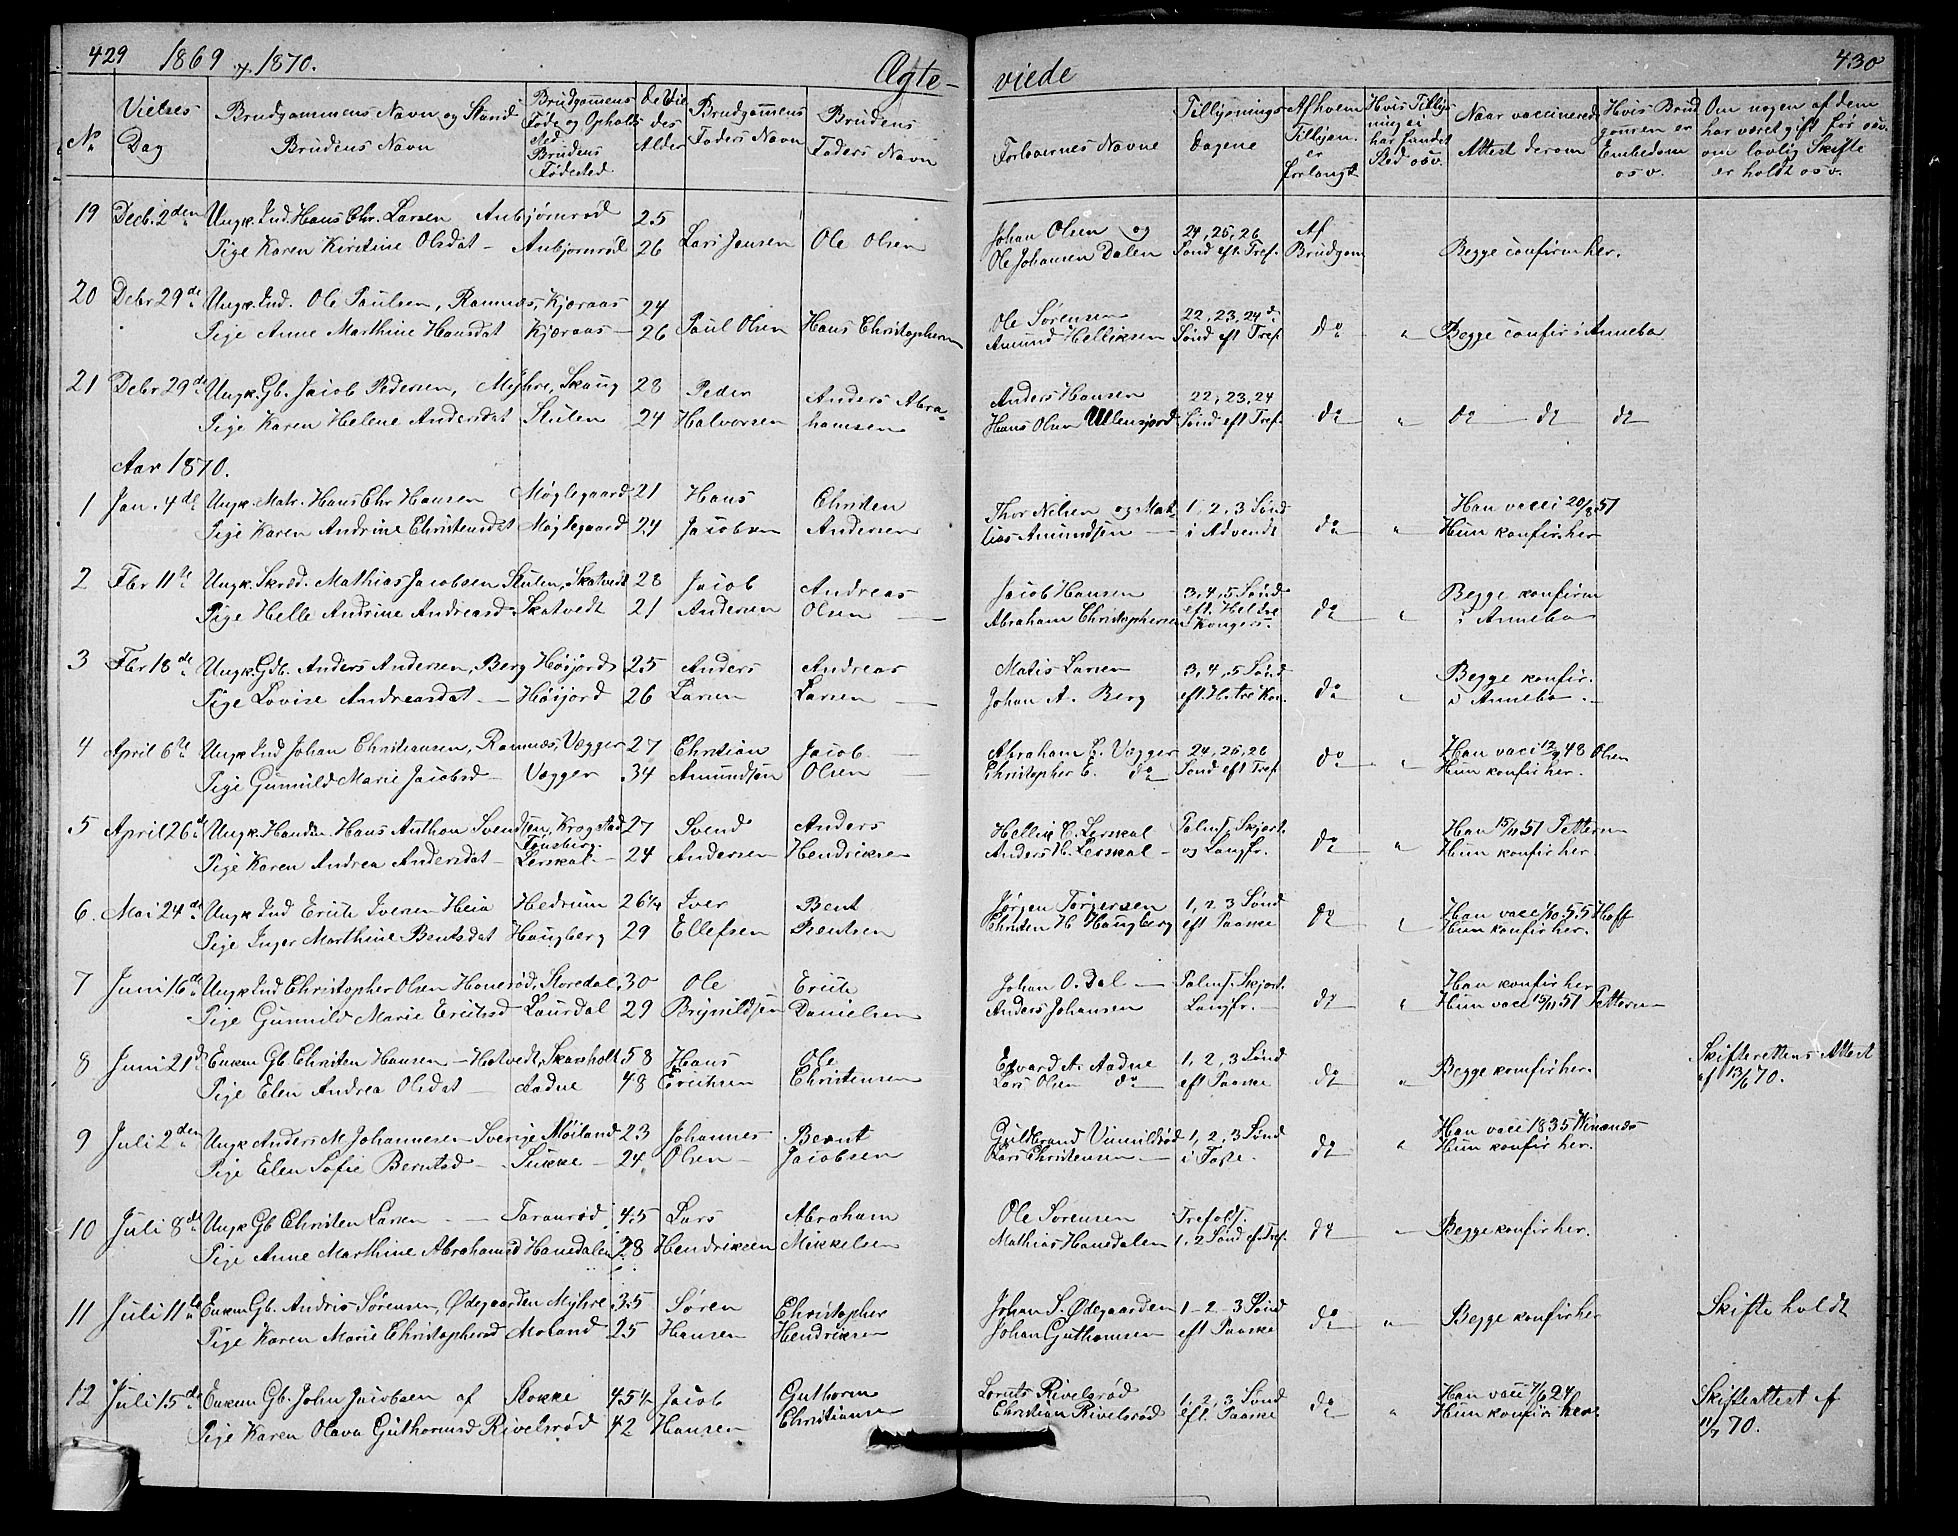 429 1869 & 1870. Ægte-
No Vielses Dag Brudgommens Navn og Stand Brudens Navn Brudgommens Føde og Opholds Sted Brudens Fødested de Viedes Alder Brudgommens Faders Navn Brudens Faders Navn
19 Decb. 2den Ungk. Ind. Hans Chr. Larsen Anbjørnrød 25
Pige Karen Kirstine Olsdat - Anbjørnrød 26 Lars Jensen Ole Olsen
20 Debr 29de Ungk. Ind. Ole Paulsen, Ramnæs, Kjæraas 24
Pige Anne Marthine Hansdat Kjæraas - 26 Paul Olsen Hans Christophersen
21 Debr 29de Ungk. Gb. Jacob Pedersen, Myhre, Skaug 28 Peder Anders Abra-
Pige Karen Helene Andersdat Stulen 24 Halvorsen hamsen
Aar 1870.
1 Jan. 4de Ungk. Matr. Hans Chr Hansen Møglegaard 21 Hans Christen
Pige Karen Andrine Christensdat Møglegaard 24 Jacobsen Andersen
2 Fbr 11te Ungk. Skræd. Mathias Jacobsen Stulen, Skatvedt 28 Jacob Andreas
Pige Helle Andrine Andreasd. Skatvedt 21 Andersen Olsen
3 Fbr 18de Ungk. Gdb. Anders Andersen, Berg Høsjord 25 Anders Andreas
Pige Lovise Andreasdat - Høsjord 26 Larsen Larsen
4 April 6te Ungk Ind Johan Christiansen, Ramnæs, Vægger 27 Christian Jacob
Pige Gunnild Marie Jacobsd - Vægger 34 Amundsen Olsen
5 April 26de Ungk. Handm. Hans Anthon Svendsen, Krogstad 27 Svend Anders
Tønsberg.
Pige Karen Andrea Andersdat - Lerskal - 24 Andersen Hendriksen
6. Mai 24de Ungk Ind Erich Iversen Heia Hedrum 26¼ Iver Bent
Pige Inger Marthine Bentsdat Haugberg 29 Ellefsen Bentsen
7 Juni 16de Ungk Ind Christopher Olsen Hanerød, Storedal 30 Ole Erich
Pige Gunnild Marie Erichsd Laurdal 29 Brynildsen Danielsen
8 Juni 21de Enkem Gb. Christen Hansen - Hotvedt, Skarsholt 58 Hans Ole
Pige Elen Andrea Olsdat - Aadne 48 Erichsen Christensen
9 Juli 2den Ungk Anders M. Johannesen Sverige Møiland 23 Johannes Bernt
Pige Elen Sofie Berntsd - Sukke - 24 Olsen - Jacobsen
10 Juli 8de Ungk Gb Christen Larsen - Taranrød 45 Lars Abraham
Pige Anne Marthine Abrahamsd Hanedalen 28 Hendriksen Mikkelsen
11 Juli 11te Enkem Gb. Andris Sørensen, Ødegaarden Myhre 35 Søren Christopher
Pige Karen Marie Christophersd Moland 25 Hansen Hendriksen
12 Juli 15de Enkem Gb. John Jacobsen af Stokke 45¼ Jacob Guthorm
Pige Karen Olava Guthormsd Rivelsrød 42 Hansen Christiansen
viede 430
Forlovernes Navne Tillysnings Dagene Af hvem Tillysn. er forlangt Hvis Tillysning ei har fundet Sted osv. Naar vaccinered Attest derom Hvis Brudgomen er Embedsm osv. Om nogen af dem har været gift før osv. om lovlig Skifte er holdt osv.
Johan Olsen og 24, 25, 26 Af
Ole Johansen Dalen Sønd eft. Tref. Brudgom Begge confirm her.
Ole Sørensen 22, 23, 24 d.
Amund Helliksen Sønd eft Tref. do " Begge confir i Annebo
Anders Hansen 22, 23, 24
Hans Olsen Ullensjord Sønd eft Tref. do " do do do
Thor Nilsen og Mat- 1, 2, 3 Sønd Han vacci 20/8 51
tias Amundsen - i Advendt do " Hun konfir her
Jacob Hansen 3, 4, 5 Sønd Begge konfirm
Abraham Christophersen eft. Hel. tre Kongers. do " i Annebo
Matis Larsen 3, 4, 5 Sønd Begge konfir.
Johan A. Berg eft. H. tre Kon. do " i Annebo -
Abraham C. Vægger 24, 25, 26 Han vacci 12/9 48 Olsen
Christopher E. do Sønd eft Tref do " Hun konfir her.
Hellik C. Lerskal Palms. Skjært. Han 15/11 51 Pettersen
Anders H. Lerskal - og Langfr. do " Hun konfir her.
Jørgen Torgersen 1, 2, 3 Sønd Han vacc 1/10 55 Hoff
Christen H Haugberg eft Paaske do " Hun konfir her.
Johan O. Dal - Palms. Skjært. Han konfir her
Anders Johansen Langfr. - do " Hun vacc 15/11 51 Pettersen
Edvard A. Aadne 1, 2, 3 Sønd Begge konfir her. Skifterettens Attest
Lars Olsen do eft Paaske do " af 13/6 70.
Guldbrand Vinnildsrød 1, 2, 3 Sønd Han vacc 1835
Lars Christensen - i Faste. do " Hun konfir her.
Ole Sørensen Trefolds.
Mathias Hanedalen 1, 2 Sønd ef. Tref. do " Begge konfir her.
Johan S. Ødegaarden 1 - 2 - 3 Sønd Skifte holdt
Johan Guthormsen eft Paaske do " Begge konfir her
Lorents Rivelsrød 1, 2, 3 Sønd Han vacc 7/6 24 Skifteattest af
Christian Rivelsrød eft. Paaske do " Hun konfir her. 11/7 70.